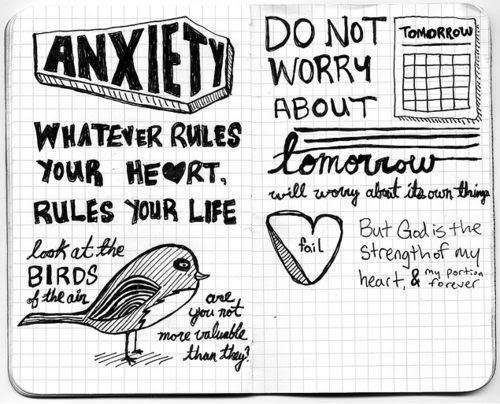 ANXIETY
WHATEVER RULES
YOUR HE♥RT,
RULES YOUR LIFE
look at the
BIRDS
of the air
are
you not
more valuable
than they?
DO NOT
WORRY
ABOUT
TOMORROW
tomorrow
will worry about its own things
fail
But God is the
strength of my
heart, & my portion
forever